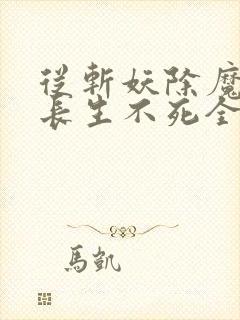 從斬妖除魔
長生不死全
馬凱